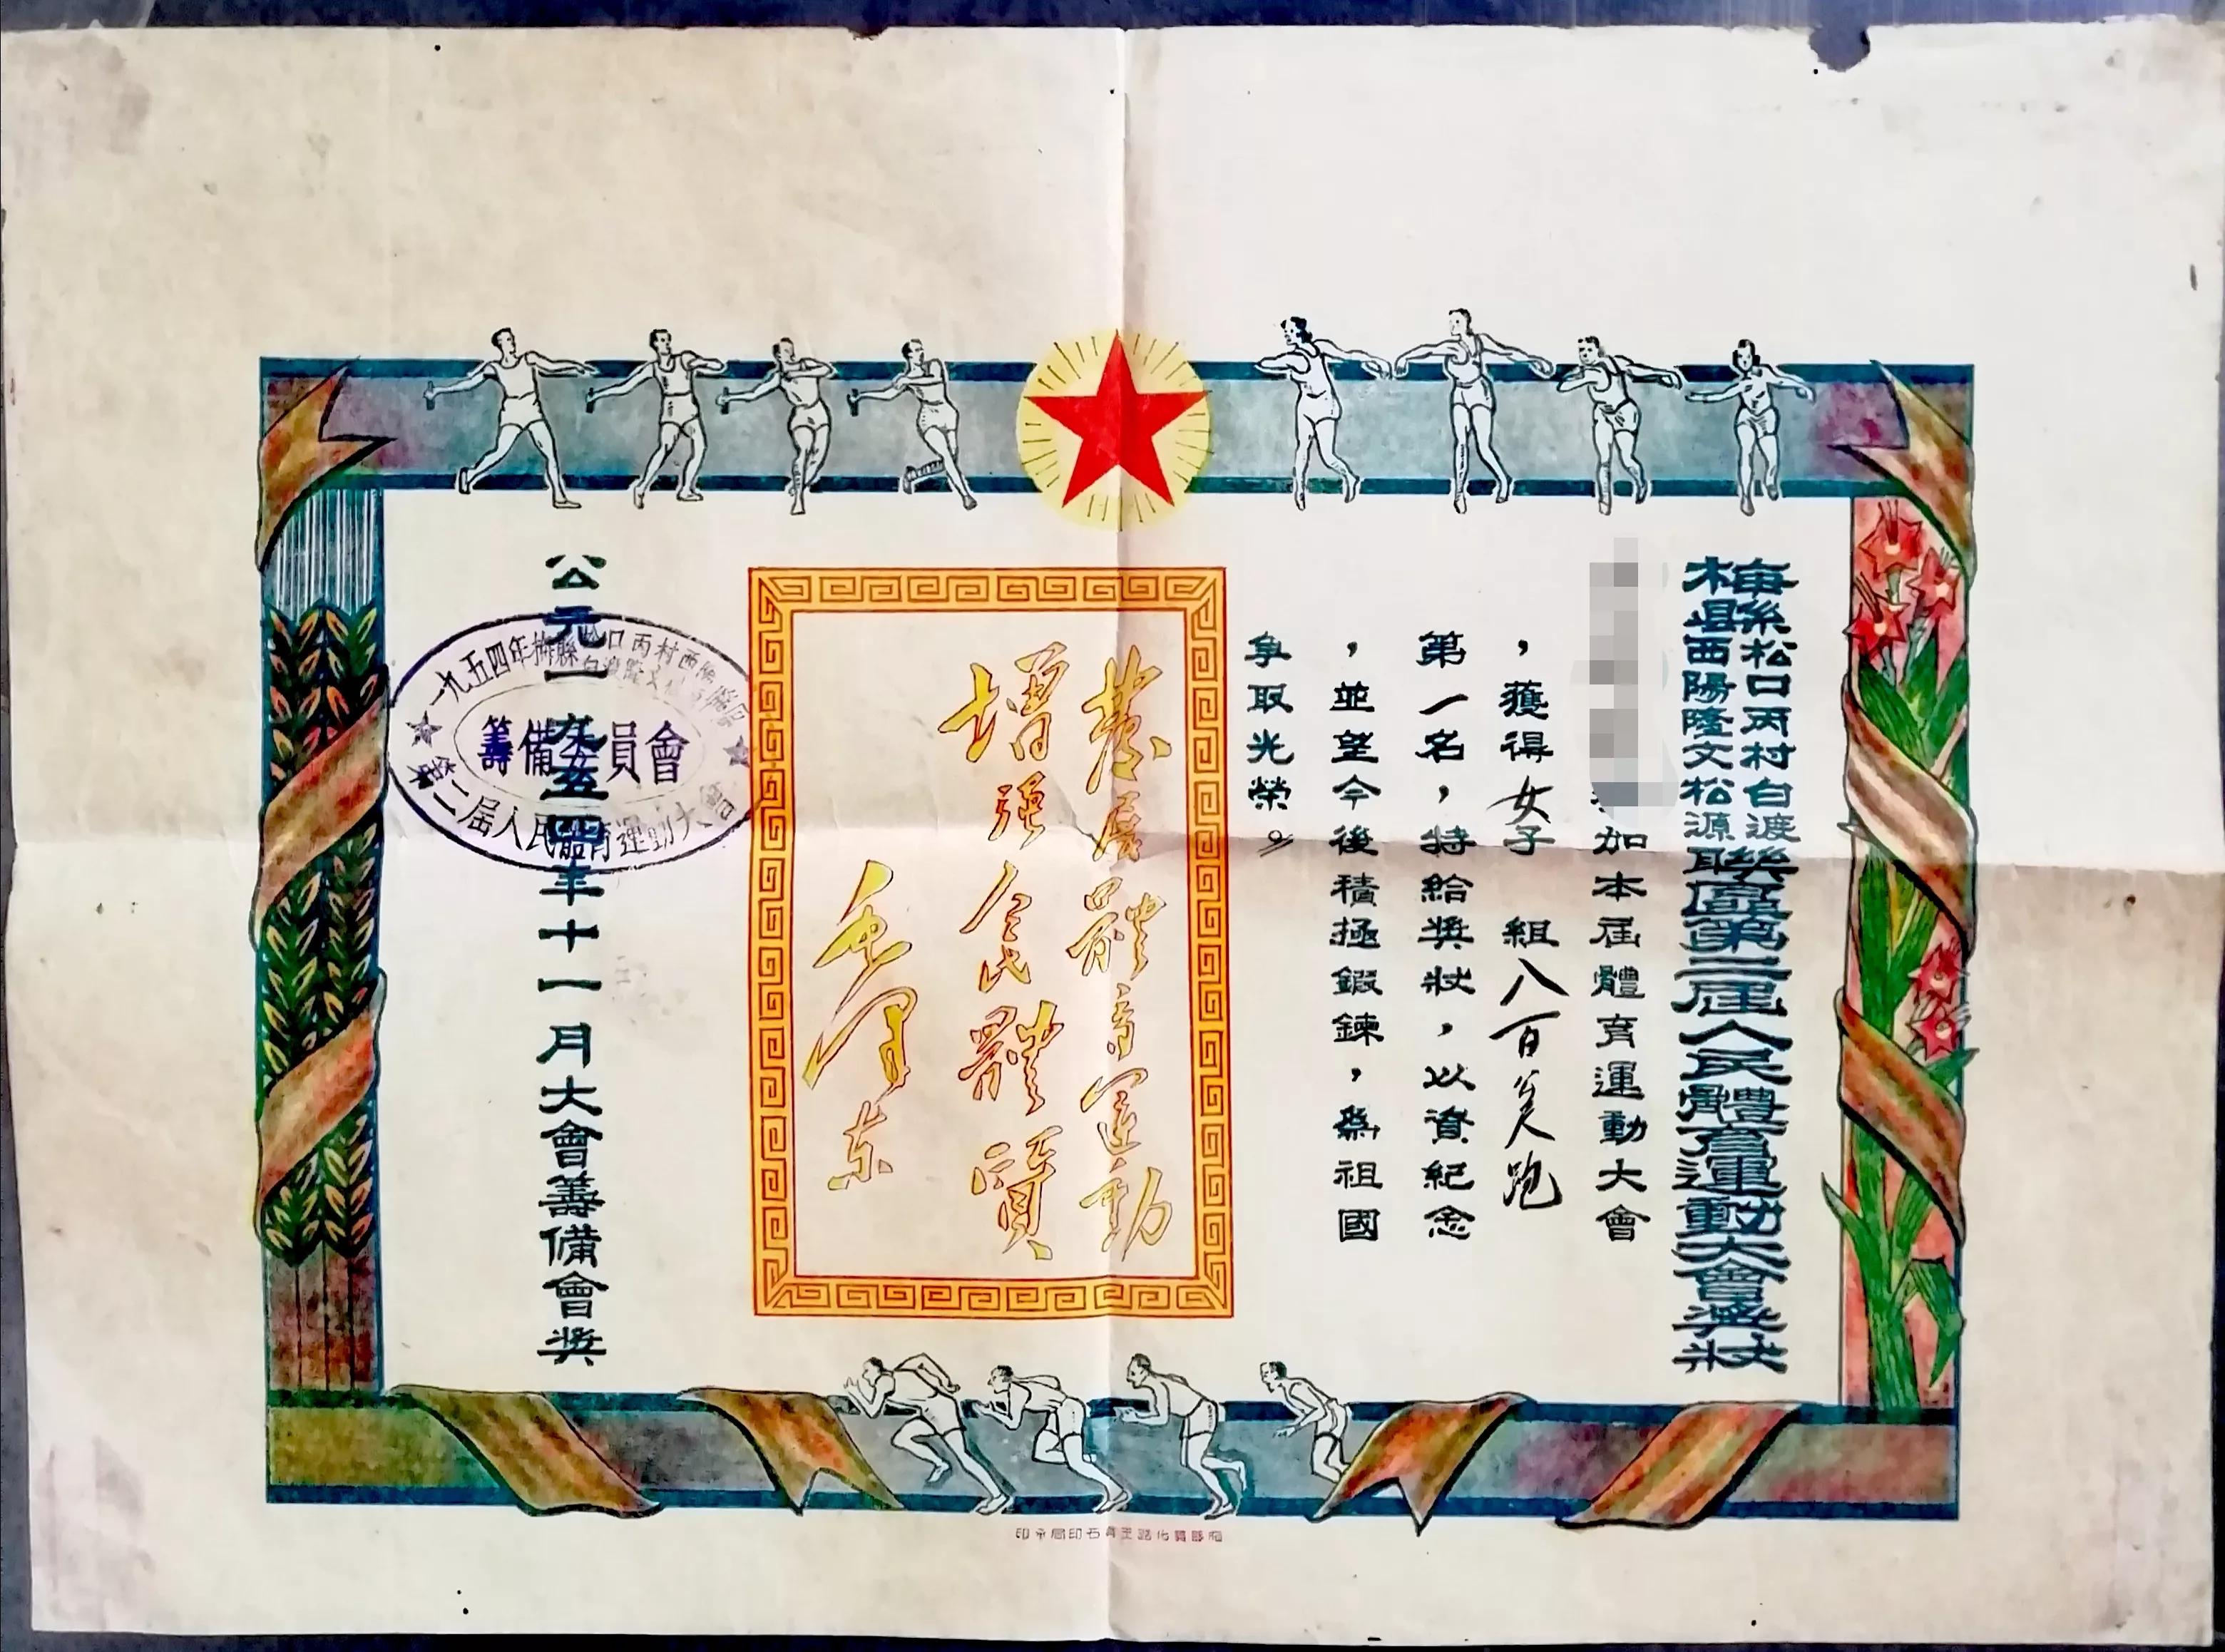 梅縣松口丙村白渡
西陽隆文松源聯區第二屆人民體育運動大會獎狀
加本屆體育運動大會
，獲得女子組八百公尺跑
第一名，特給獎狀，以資紀念
，並望今後積極鍛鍊，為祖國
爭取光榮。
發展體育運動
增強人民體質
毛澤东
公元一九五四年十一月大會籌備會獎
一九五四年梅縣松口丙村西陽
白渡隆文松源聯區
籌備委員會
第二屆人民體育運動大會